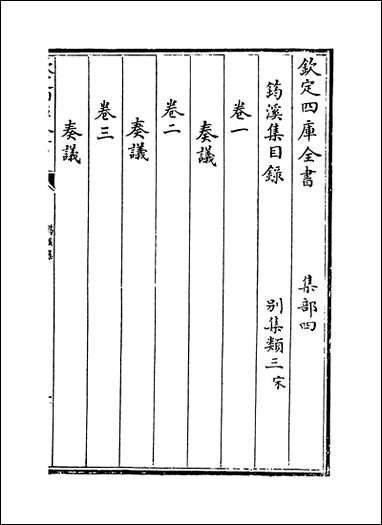 欽定四庫全書 集部四
筠溪集目錄 別集類三宋
卷一
奏議
卷二
奏議
卷三
奏議